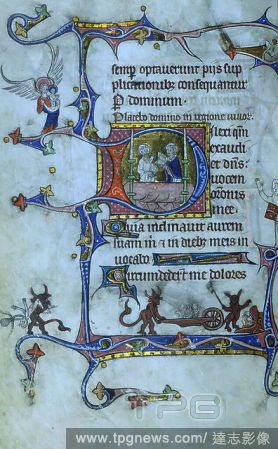 semp optauerunt pijs sup
plicationib; consequantur
P dominum.
Placebo domino in regione uiuor.
Dilexi qm
exaudi
et dns:
uocem
oronis
mee.
Quia inclinauit aurem
suam m i et in dieb; meis in
uocabo
Circumdedert me dolores
TPG
www.tpgnews.com/ 達志影像